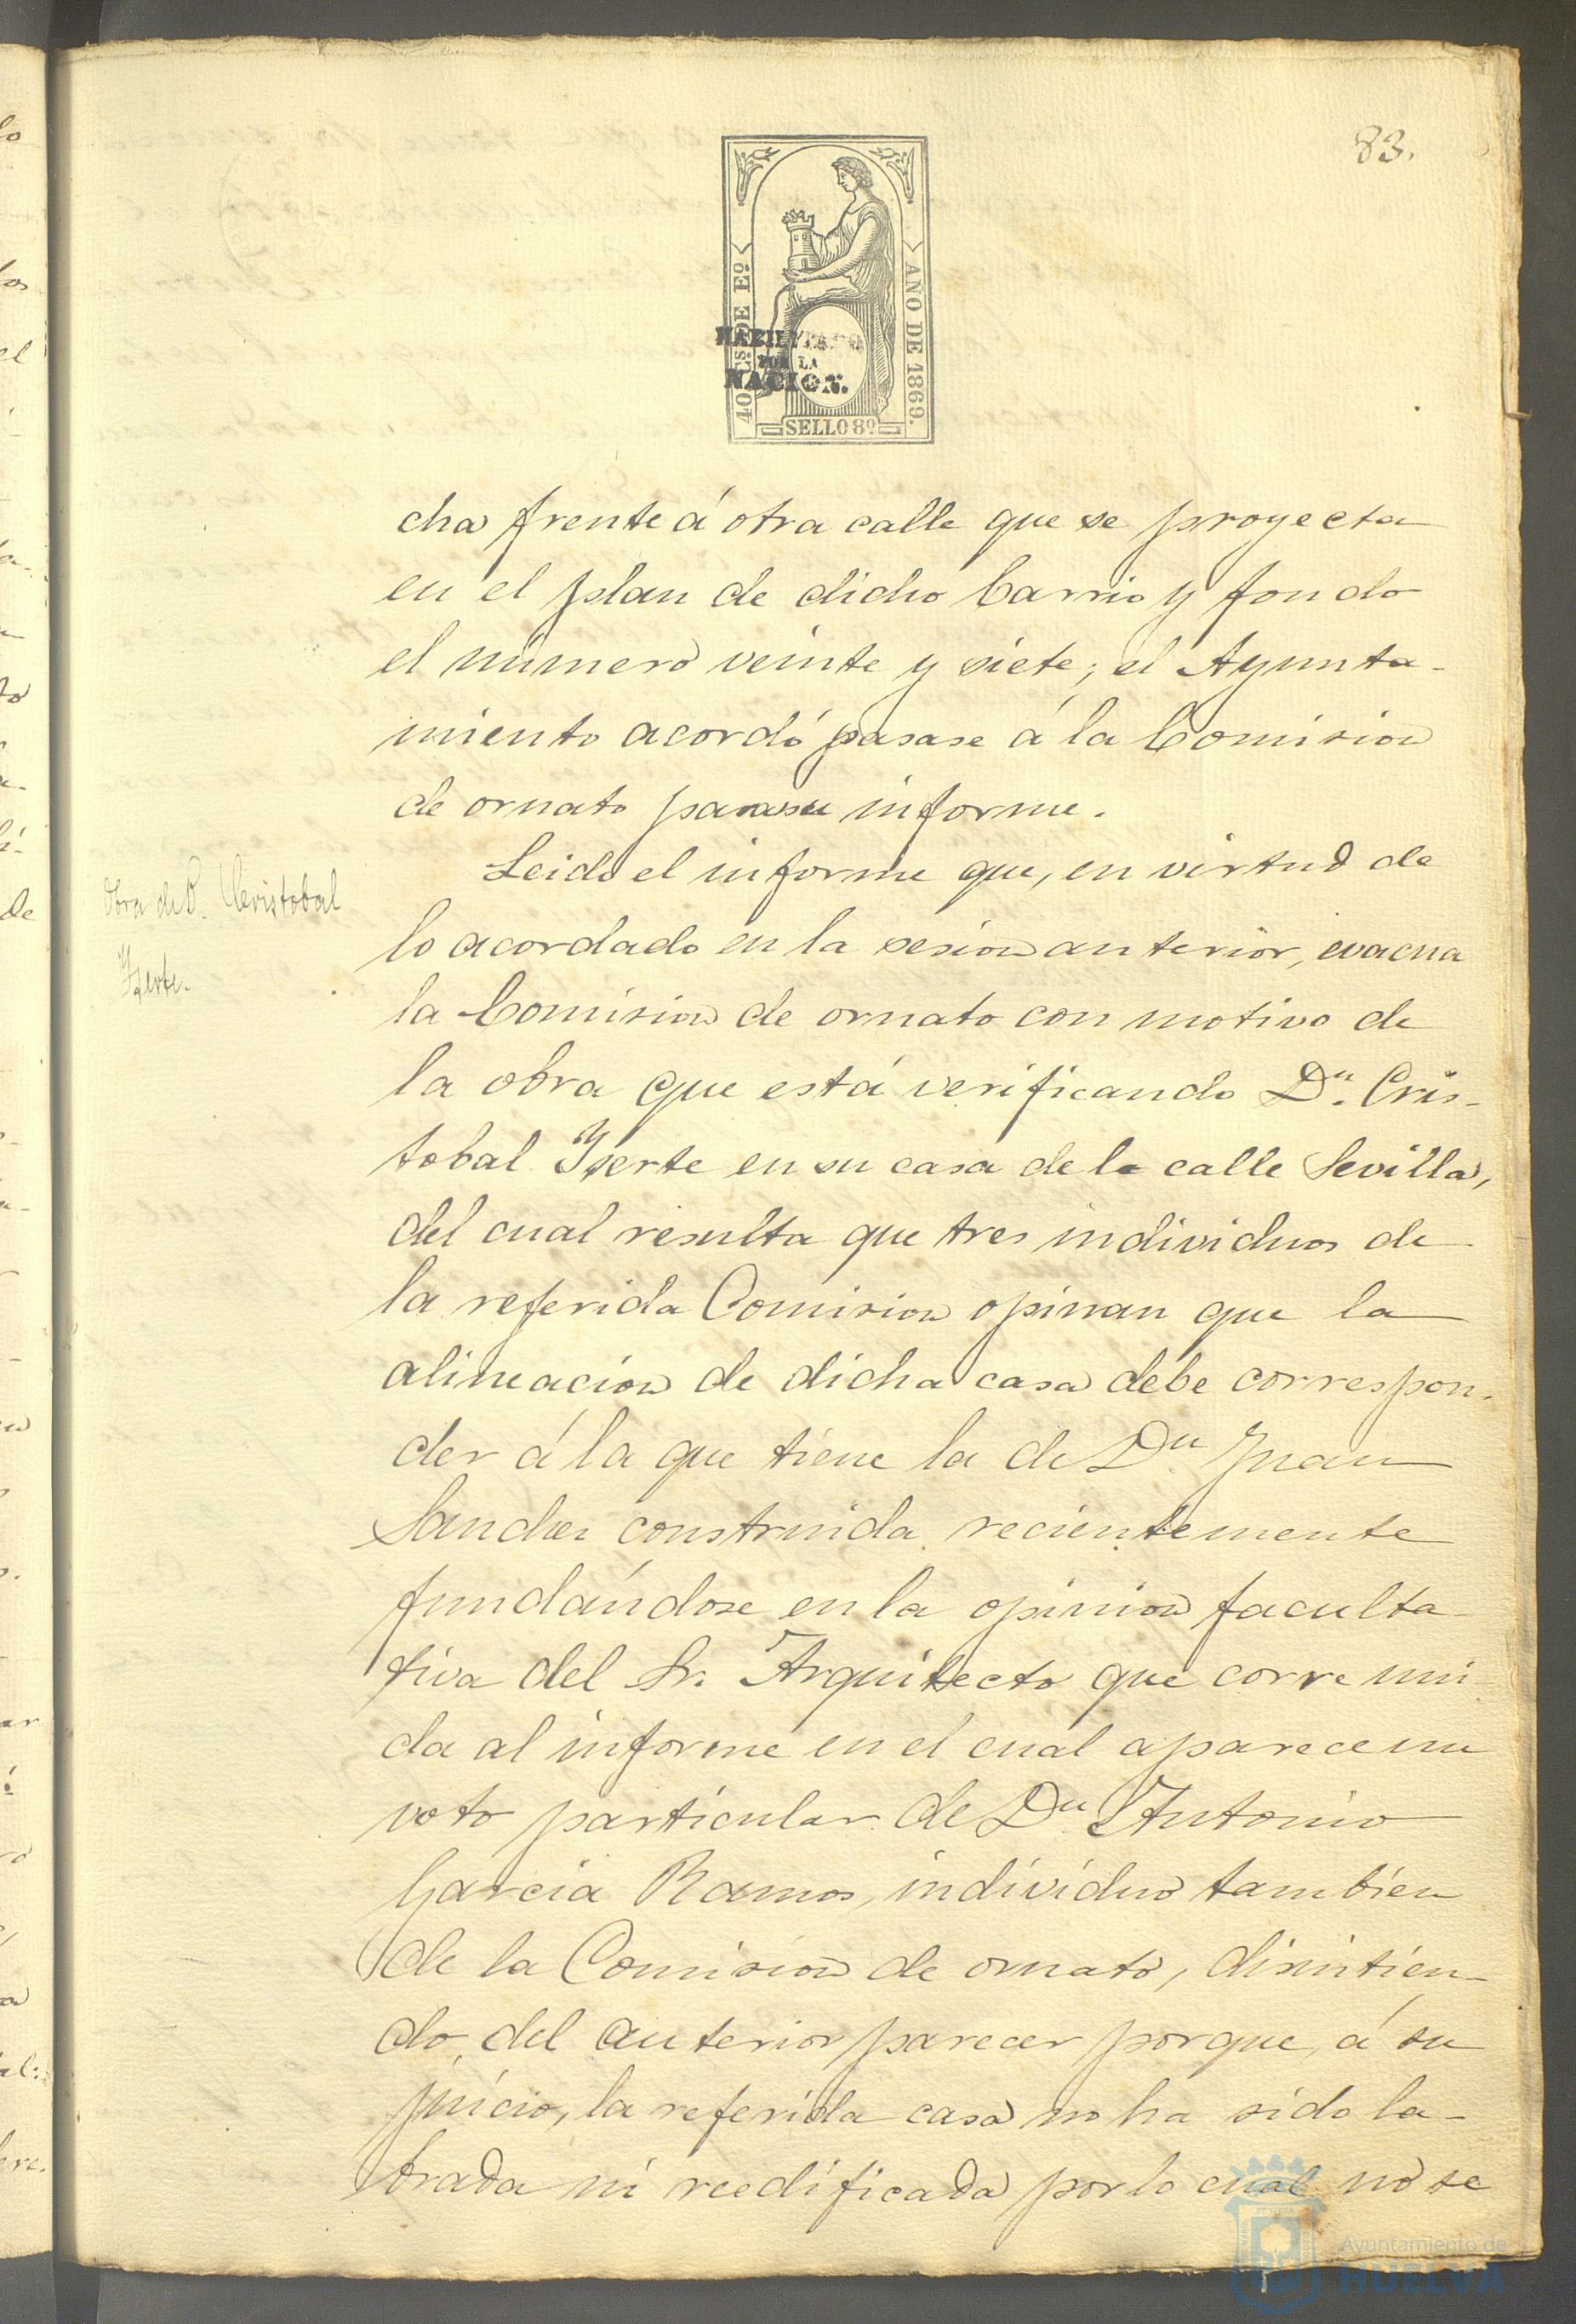 83.
40 Ms DE Eº
AÑO DE 1869.
HABILITADO
POR LA
NACION.
SELLO 8º
cha frente á otra calle que se proyecta
en el plan de dicho barrio y fondo
el número veinte y siete; el Ayunta-
miento acordó pasase á la Comision
de ornato para su informe.
Obra de D. Cristobal
Yserte.
Leido el informe que, en virtud de
lo acordado en la sesion anterior, evacua
la Comision de ornato con motivo de
la obra que está verificando Dn. Cris-
tobal Yserte en su casa de la calle Sevilla,
del cual resulta que tres individuos de
la referida Comision opinan que la
alineacion de dicha casa debe correspon-
der á la que tiene la de Dn Juan
Sanchez construida recientemente
fundándose en la opinion faculta-
tiva del Sr. Arquitecto que corre uni-
da al informe en el cual aparece un
voto particular de Dn Antonio
Garcia Ramos, individuo tambien
de la Comision de ornato, disintien-
do del anterior parecer porque, á su
juicio, la referida casa no ha sido la-
brada ni reedificada por lo cual no se
Ayuntamiento de
HUELVA